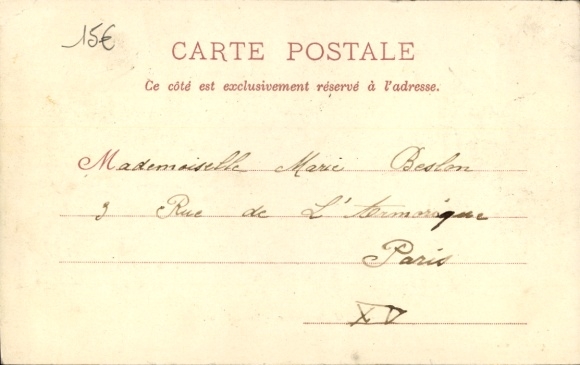 15€
CARTE POSTALE
Ce côté est exclusivement réservé à l'adresse.
Mademoiselle Marie Beslon
3 Rue de L'Armorique
Paris
XV